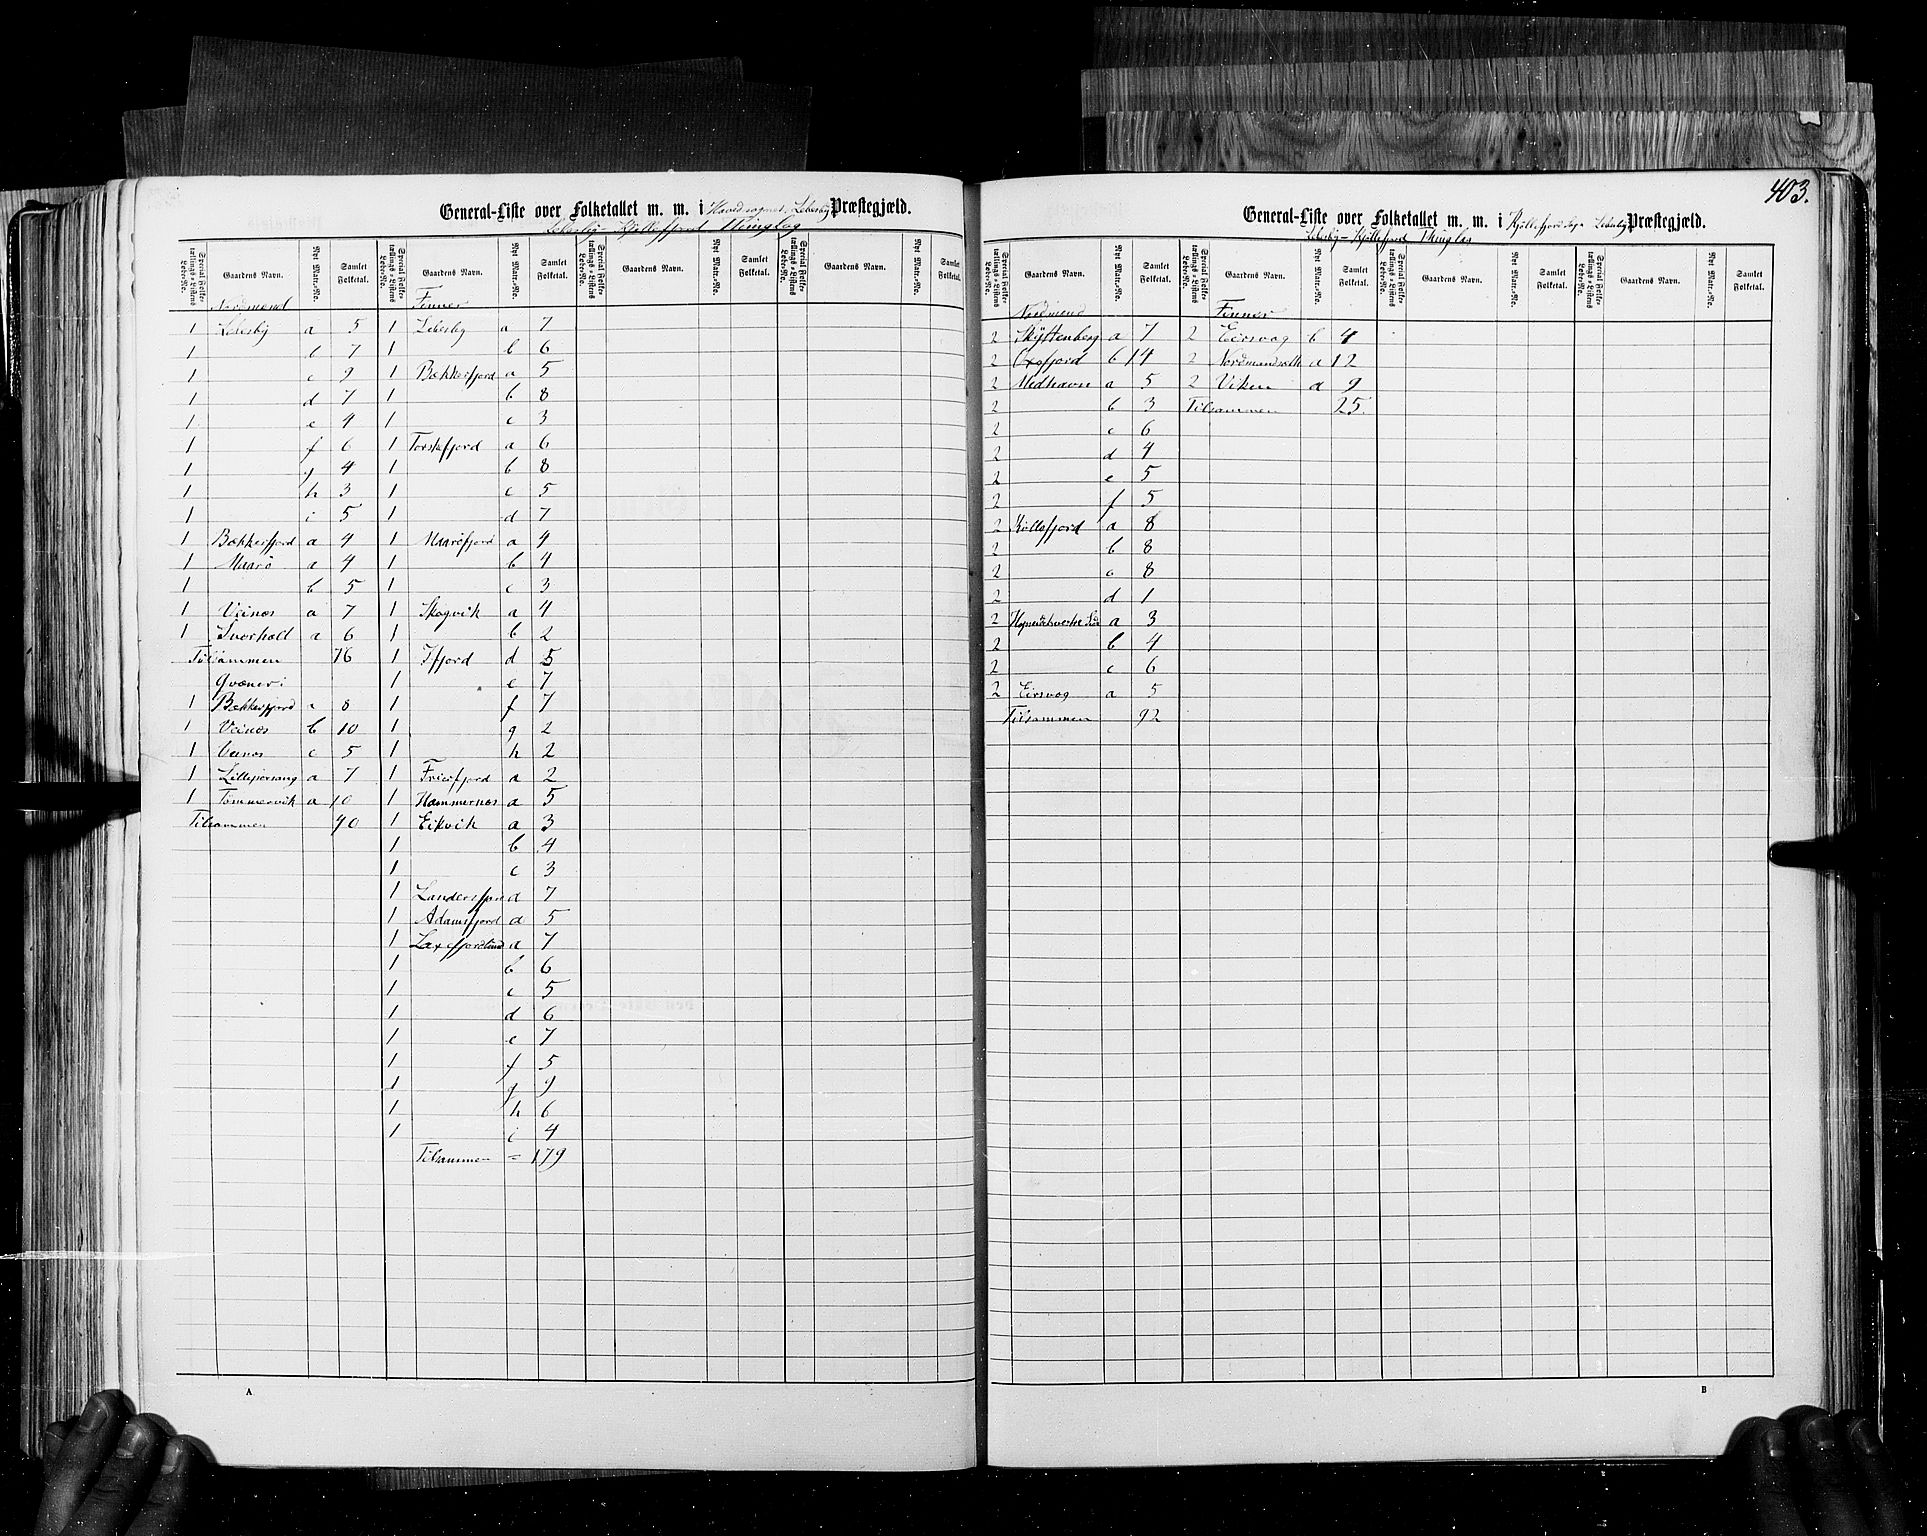 403.
General-Liste over Folketallet m. m. i Hovedsognet, Lebesby Præstegjæld.
Lebesby-Kjøllefjord Thinglag
Special Folketællings-Listens Løbe-No. Gaardens Navn. Nyt Matr.-No. Samlet Folketal. Special Folketællings-Listens Løbe-No. Gaardens Navn. Nyt Matr.-No. Samlet Folketal. Special Folketællings-Listens Løbe-No. Gaardens Navn. Nyt Matr.-No. Samlet Folketal. Special Folketællings-Listens Løbe-No. Gaardens Navn. Nyt Matr.-No. Samlet Folketal.
Nordmænd Finner
1 Lebesby a 5 1 Lebesby a 7
1 b 7 1 b 6
1 c 9 1 Bækkerfjord a 5
1 d 7 1 b 8
1 e 4 1 c 3
1 f 6 1 Torskefjord a 6
1 g 4 1 b 8
1 h 3 1 c 5
1 i 5 1 d 7
1 Bækkerfjord a 4 1 Maaröfjord a 4
1 Maarö a 4 1 b 4
1 b 5 1 c 3
1 Veinæs a 7 1 Skogvik a 4
1 Sværholt a 6 1 b 2
Tilsammen 76 1 Ifjord d 5
Qvæner: 1 e 7
1 Bækkerfjord a 8 1 f 7
1 Veinæs b 10 1 g 2
1 Veinæs c 5 1 h 2
1 Lilleporsang a 7 1 Friarfjord a 2
1 Tømmervik a 10 1 Hammernæs a 5
Tilsammen 40 1 Eikvik a 3
1 b 4
1 c 3
1 Landersfjord d 7
1 Adamsfjord a 5
1 Laxefjordbund a 7
1 b 6
1 c 5
1 d 6
1 e 7
1 f 5
1 g 9
1 h 6
1 i 4
Tilsammen = 179
A
General-Liste over Folketallet m. m. i Kjøllefjord Sogn Lebesby Præstegjæld.
Lebesby-Kjøllefjord Thinglag
Special Folketællings-Listens Løbe-No. Gaardens Navn. Nyt Matr.-No. Samlet Folketal. Special Folketællings-Listens Løbe-No. Gaardens Navn. Nyt Matr.-No. Samlet Folketal. Special Folketællings-Listens Løbe-No. Gaardens Navn. Nyt Matr.-No. Samlet Folketal. Special Folketællings-Listens Løbe-No. Gaardens Navn. Nyt Matr.-No. Samlet Folketal.
Nordmænd Finner
2 Skjøttenberg a 7 2 Eirsvag b 4
2 Oxefjord b 14 2 Nordmandsætt a 12
2 Medhavn a 5 2 Viken a 9
2 b 3 Tilsammen 25
2 c 6
2 d 4
2 e 5
2 f 5
2 Kjøllefjord a 8
2 b 8
2 c 8
2 d 1
2 a 3
2 b 4
2 c 6
2 Eirsvag a 5
Tilsammen 92
B